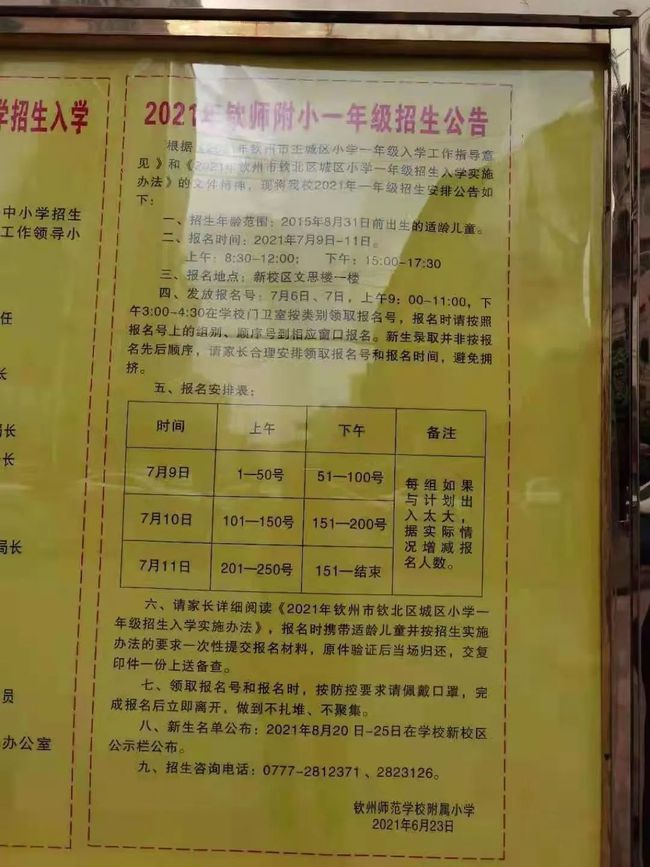 学招生入学
中小学招生
工作领导小
任
长
局长
长
局长
员
办公室
2021年钦师附小一年级招生公告
根据《2021年钦州市主城区小学一年级入学工作指导意
见》和《2021年钦州市钦北区城区小学一年级招生入学实施
办法》的文件精神，现将我校2021年一年级招生安排公告如
下：
一、招生年龄范围：2015年8月31日前出生的适龄儿童。
二、报名时间：2021年7月9日-11日。
上午：8:30-12:00； 下午：15:00-17:30
三、报名地点：新校区文思楼一楼
四、发放报名号：7月6日、7日，上午9：00-11:00，下
午3:00-4:30在学校门卫室按类别领取报名号，报名时请按照
报名号上的组别、顺序号到相应窗口报名。新生录取并非按报
名先后顺序，请家长合理安排领取报名号和报名时间，避免拥
挤。
五、报名安排表：
时间 上午 下午 备注
7月9日 1—50号 51—100号
7月10日 101—150号 151—200号
7月11日 201—250号 151—结束
每组如果
与计划出
入太大，
据实际情
况增减报
名人数。
六、请家长详细阅读《2021年钦州市钦北区城区小学一
年级招生入学实施办法》，报名时携带适龄儿童并按招生实施
办法的要求一次性提交报名材料，原件验证后当场归还，交复
印件一份上送备查。
七、领取报名号和报名时，按防控要求请佩戴口罩，完
成报名后立即离开，做到不扎堆、不聚集。
八、新生名单公布：2021年8月20 日-25日在学校新校区
公示栏公布。
九、招生咨询电话：0777-2812371 、2823126。
钦州师范学校附属小学
2021年6月23日